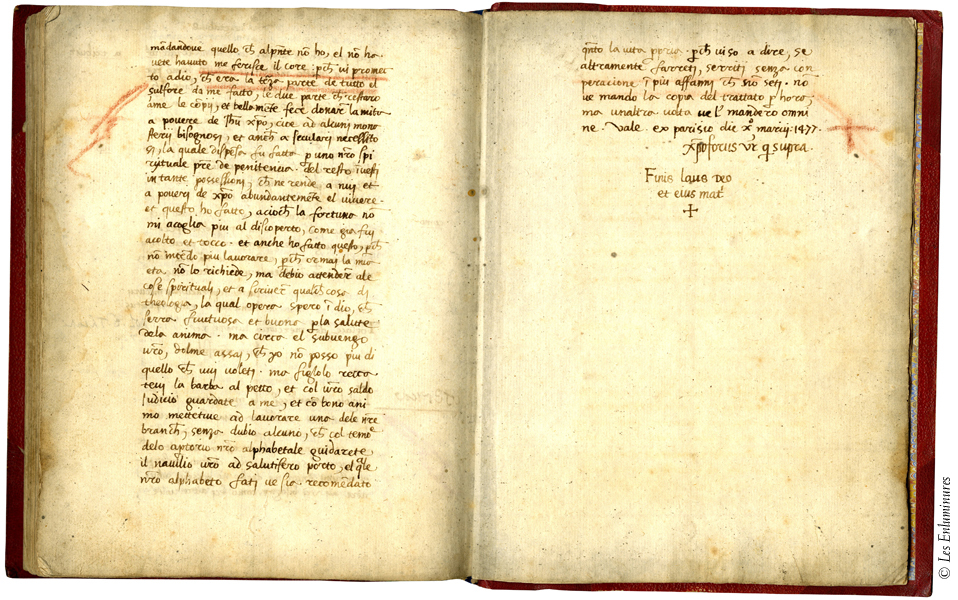 mādandove quello ch̄ alpn̄te nō ho, el nō ha
vete havuto me ferisce il core: pch̄ vi promet
to adio, ch̄ era la terza parte de tutto el
sulfore da me fatto, le due parte ch̄ restoro
ame le copij, et bellamēte fece donare la mita
a povere de Jhū xp̄o, cioe ad alcuni mona
sterij bisognosi, et anch̄ a seculari necessito
si, la quale dispēsa fu fatta p uno nr̄o spi
rituale pr̄e de penitencia. del resto
in tante possessioni, ch̄ ne rende a nuj et
a poverj de xp̄o abundantemēte el vivere.
et questo ho fatto, acioch̄ la fortuna nō
mi acoglia piu al discoperto, come gia fuj
acolto et tocco. et anche ho fatto questo, pch̄
nō intēdo piu lavorare, pch̄ ormaj la mia
eta nō lo richiede, ma debio attendere ale
cose spirituali, et a scrivere qualch̄ cosa di
theologia, la qual opera spero ī dio, ch̄
serra fructuosa et buona p la salute
dela anima. ma circa el subuengo
vr̄o, dolme assaj, ch̄ yo nō posso piu di
quello ch̄ vuj voleti. ma figlolo recca
tevj la barba al petto, et col vr̄o saldo
Judicio guardate a me, et cō bono ani
mo mettetive ad lavorare una dele nr̄e
branch̄, senza dubio alcuno, ch̄ col temo
delo aptorio nr̄o alphabetale guidarete
il navilio vr̄o ad salutifero porto, el qle
nr̄o alphabeto fati ve sia recomēdato
qn̄to la vita ppria. pch̄ viso a dire, se
altramente farreti, serriti senza con
peracione ī piu affannj ch̄ nō seti. nō
ve mando la copia del trattato p hora,
ma unaltra volta ve l' manderō omni
ne. Vale. ex parisio die xº marcij. 1477.
xp̄oforus vr̄ q supra.
Finis laus deo
et eius matī
© Les Enluminures